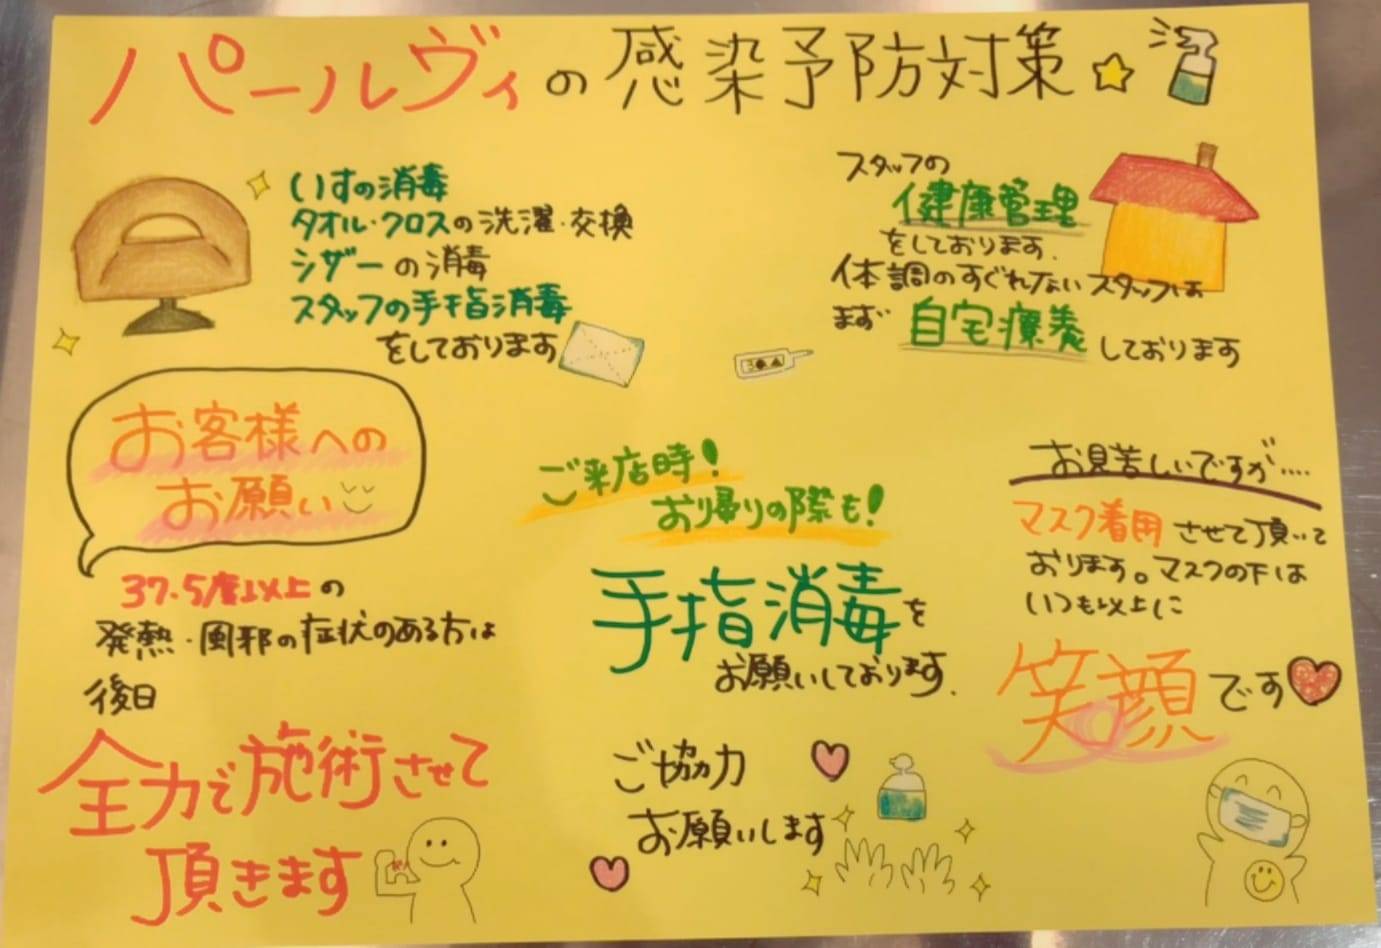 パールヴィの感染予防対策
いすの消毒
タオル・クロスの洗濯・交換
シザーの消毒
スタッフの手指消毒
をしております
スタッフの
健康管理
をしております.
体調のすぐれないスタッフは
まず 自宅療養 しております
お客様への
お願い
37.5度以上の
発熱・風邪の症状のある方は
後日
全力で施術させて
頂きます
ご来店時!
お帰りの際も!
手指消毒を
お願いしております.
ご協力
お願いします
お見苦しいですが....
マスク着用 させて頂いて
おります。マスクの下は
いつも以上に
笑顔です